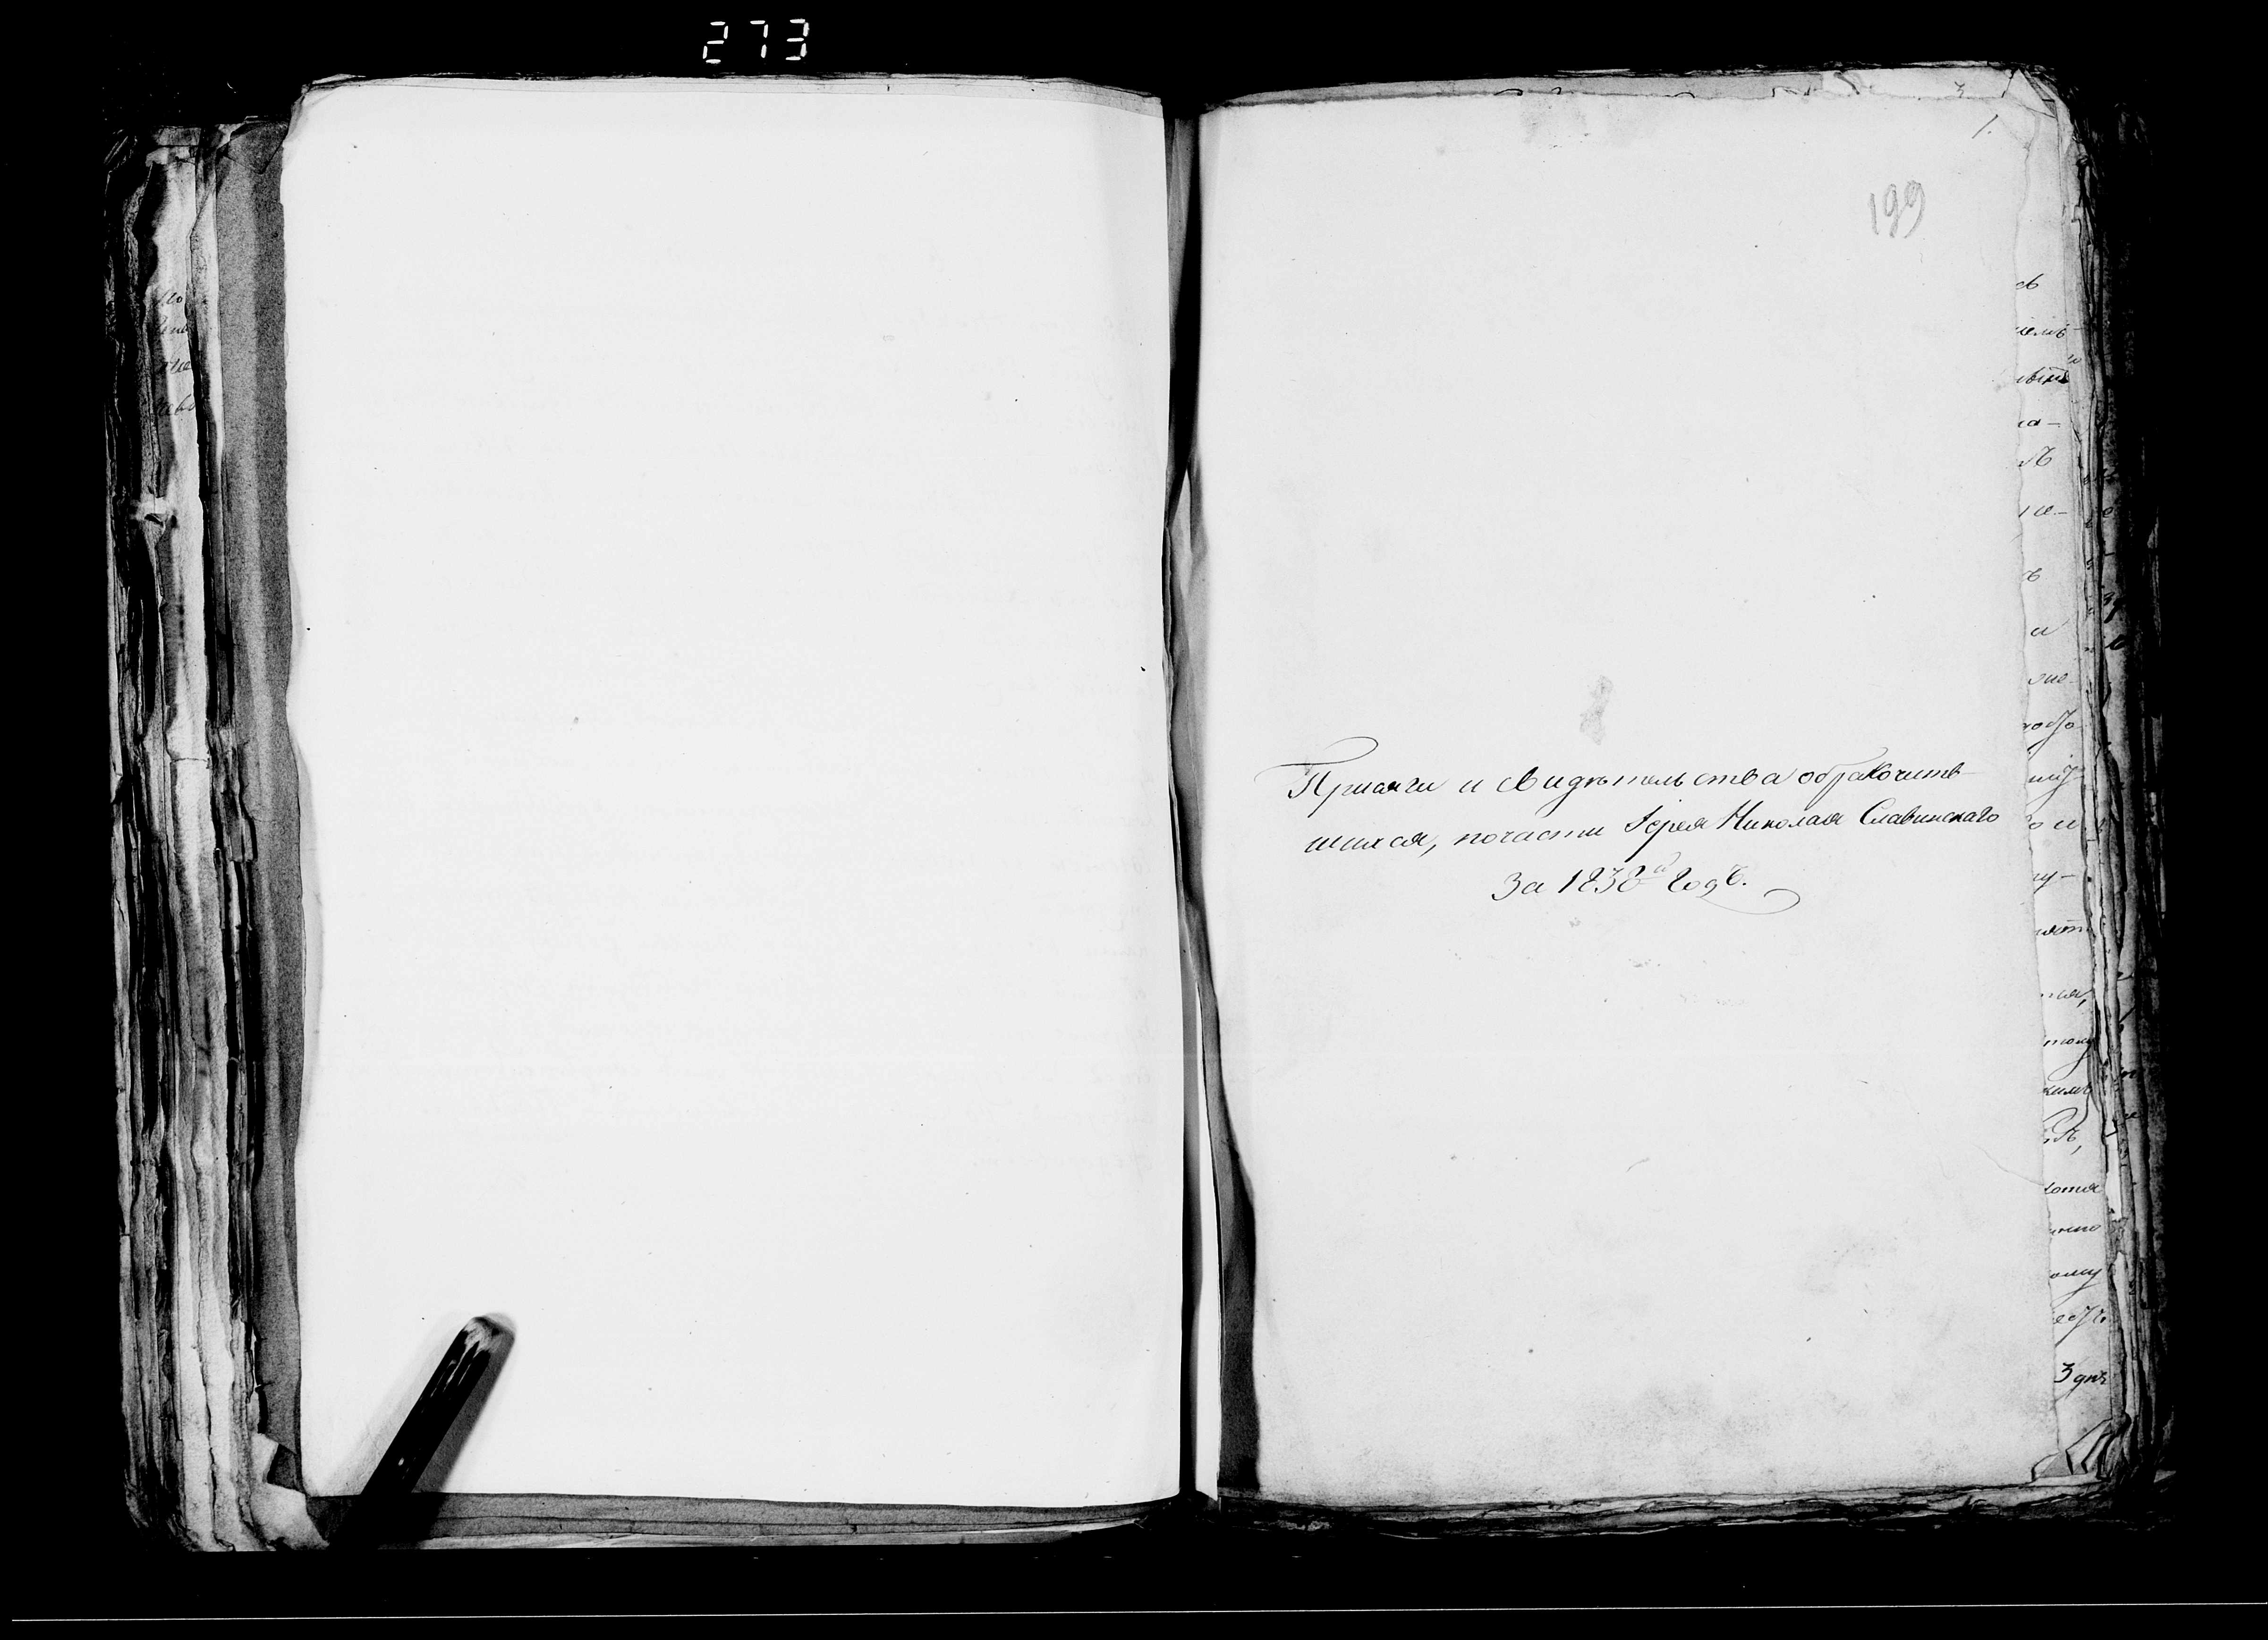 273
1.
199
Присяги и свидѣтельства обракочитв-
шихся, почасти Іерея Николая Славинскаго
За 1838й годъ.